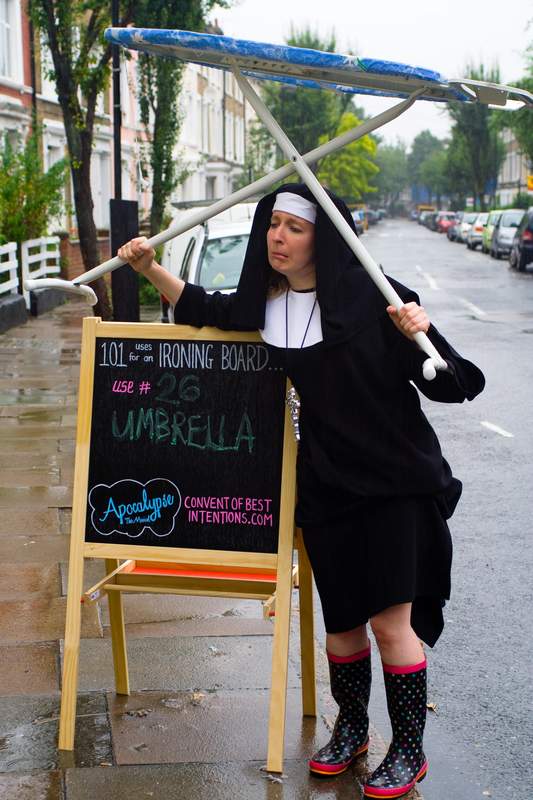 101 uses for an IRONING BOARD...
use # 26
UMBRELLA
Apocalypse
The Musical
CONVENT OF BEST
INTENTIONS.COM